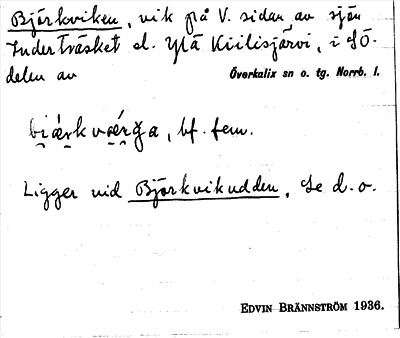 Björkviken, vik på V. sidan av sjön
Inder Träsket el. Ylä Kiilisjärvi, i SÖ.
delen av Överkalix sn o. tg. Norrb. l.
bf. fem.
Ligger vid Björkvikudden, Se d. o.
EDVIN BRÄNNSTRÖM 1936.